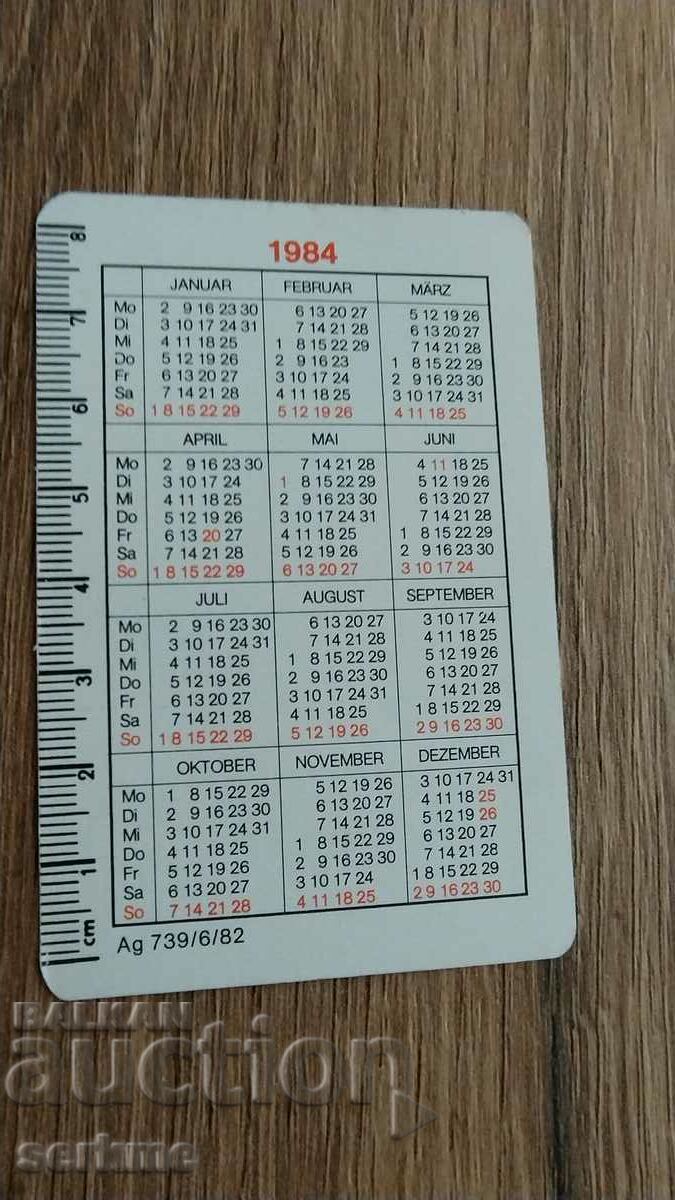 1984
JANUAR FEBRUAR MÄRZ
Mo 2 9 16 23 30 6 13 20 27 5 12 19 26
Di 3 10 17 24 31 7 14 21 28 6 13 20 27
Mi 4 11 18 25 1 8 15 22 29 7 14 21 28
Do 5 12 19 26 2 9 16 23 1 8 15 22 29
Fr 6 13 20 27 3 10 17 24 2 9 16 23 30
Sa 7 14 21 28 4 11 18 25 3 10 17 24 31
So 1 8 15 22 29 5 12 19 26 4 11 18 25
APRIL MAI JUNI
Mo 2 9 16 23 30 7 14 21 28 4 11 18 25
Di 3 10 17 24 1 8 15 22 29 5 12 19 26
Mi 4 11 18 25 2 9 16 23 30 6 13 20 27
Do 5 12 19 26 3 10 17 24 31 7 14 21 28
Fr 6 13 20 27 4 11 18 25 1 8 15 22 29
Sa 7 14 21 28 5 12 19 26 2 9 16 23 30
So 1 8 15 22 29 6 13 20 27 3 10 17 24
JULI AUGUST SEPTEMBER
Mo 2 9 16 23 30 6 13 20 27 3 10 17 24
Di 3 10 17 24 31 7 14 21 28 4 11 18 25
Mi 4 11 18 25 1 8 15 22 29 5 12 19 26
Do 5 12 19 26 2 9 16 23 30 6 13 20 27
Fr 6 13 20 27 3 10 17 24 31 7 14 21 28
Sa 7 14 21 28 4 11 18 25 1 8 15 22 29
So 1 8 15 22 29 5 12 19 26 2 9 16 23 30
OKTOBER NOVEMBER DEZEMBER
Mo 1 8 15 22 29 5 12 19 26 3 10 17 24 31
Di 2 9 16 23 30 6 13 20 27 4 11 18 25
Mi 3 10 17 24 31 7 14 21 28 5 12 19 26
Do 4 11 18 25 1 8 15 22 29 6 13 20 27
Fr 5 12 19 26 2 9 16 23 30 7 14 21 28
Sa 6 13 20 27 3 10 17 24 1 8 15 22 29
So 7 14 21 28 4 11 18 25 2 9 16 23 30
Ag 739/6/82
cm 1 2 3 4 5 6 7 8
BALKAN
auction
serkme